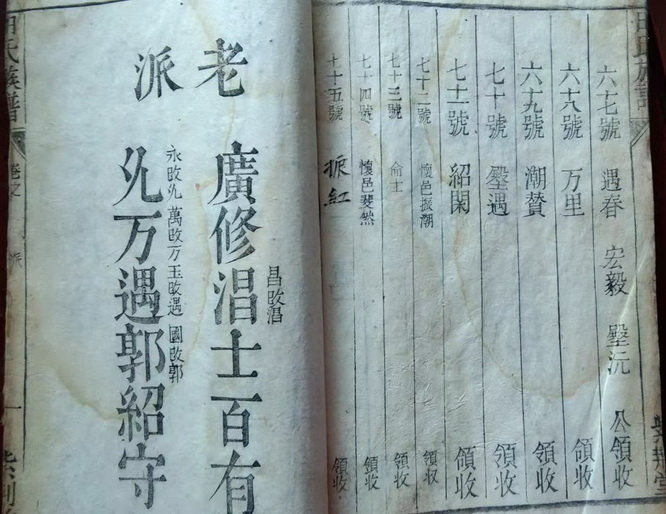 六七號 遇春 宏毅 壂沅 公領收
六八號 万里 領收
六九號 潮贊 領收
七十號 壂遇 領收
七十一號 紹閑 領收
七十二號 懷邑振潮 領收
七十三號 命士 領收
七十四號 懷邑斐然 領收
七十五號 振紅 領收
老派
廣修淐士百有
昌改淐
永改𣱵 萬改万 玉改遇 國改郭
𣱵万遇郭紹守
氏族譜
卷之
派
一